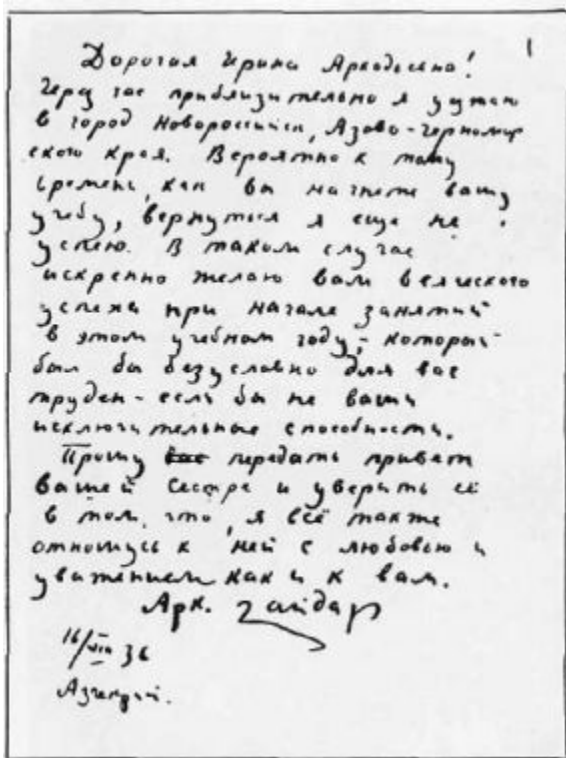 1
Дорогая Ирина Аркадьевна!
Через час приблизительно я уезжаю
в город Новороссийск, Азово-Черномор
ского края. Вероятно к тому
времени, как вы начнете вашу
учебу, вернуться я еще не
успею. В таком случае
искренно желаю вам всяческого
успеха при начале занятий
в этом учебном году,- который
был бы безусловно для вас
труден - если бы не ваши
исключительные способности.
Прошу вас передать привет
вашей сестре и уверить её
в том, что я всё также
отношусь к ней с любовью и
уважением как и к вам.
Арк. Гайдар
16/VIII 36